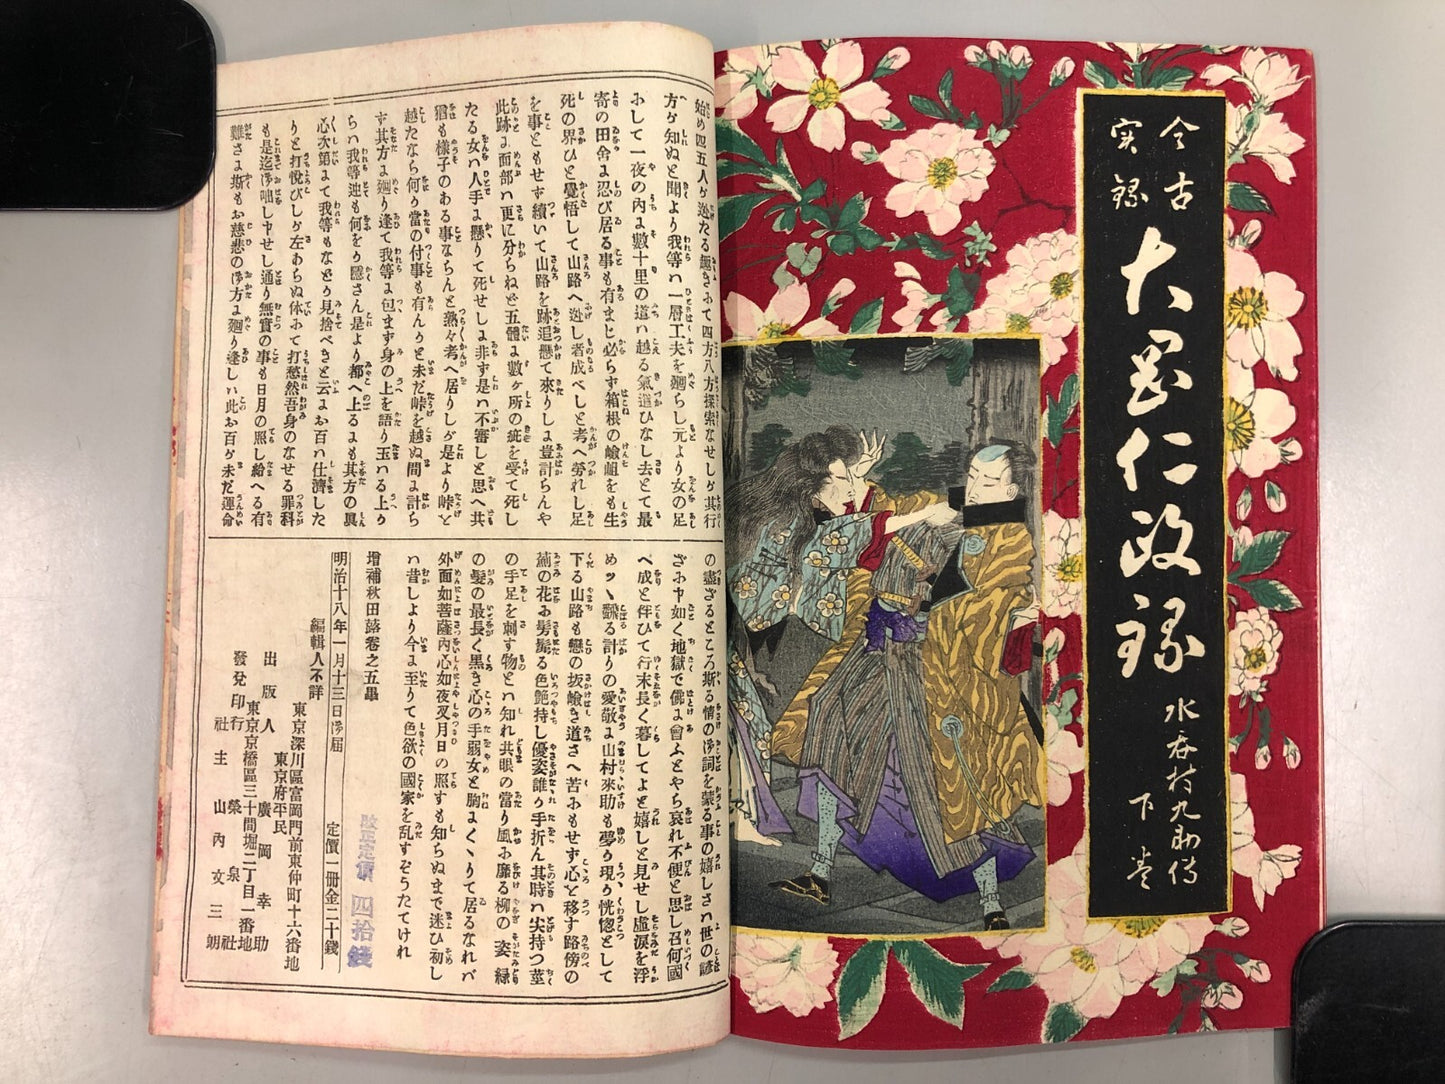 今古
実録
大岡仁政録
水呑村九助傳
下巻
始め四五人が迯たる趣きふて四方八方探索なせしが其行
方が知ぬと聞より我等ハ一層工夫を廻らし元より女の足
ふして一夜の内よ數十里の道ハ越る氣遣ひなし去とて最
寄の田舎よ忍び居る事も有まじ必らず箱根の嶮岨をも生
死の界ひと覺悟して山路へ迯し者成べしと考へ勞れし足
を事ともせず續いて山路を跡追懸て來りしよ豈計らんや
此跡よ面部ハ更に分らねど五體よ數ヶ所の疵を受て死し
たる女ハ人手よ懸りて死せしよ非ず是ハ不審しと思へ共
猶も様子のある事ならんと熟々考へ居りしが是より峠と
越たなら何り當の付事も有んりと未だ峠を越ぬ間よ計ら
す其方よ廻り逢て我等よ包まず身の上を語り玉いる上り
らハ我等迚も何をり隱さん是より都へ上るよも其方の眞
心次第よて我等もなどり見捨べきと云よお百ハ仕濟した
りと打悦びしが左あらぬ体ふて打愁然吾身のなせる罪科
も是迄御咄し申せし通り無實の事も日月の照し給へる有
難さよ斯もお慈悲の御方よ廻り逢しハ此お百が未だ運命
の盡ざるところ斯る情の御詞を蒙る事の嬉しさハ世の諺
ざふ申如く地獄で佛よ曾ふとやら哀れ不便と思し召何國
へ成と伴ひて行末長く暮してよと嬉しと見せし虚涙を浮
めツヽ飜る計りの愛敬よ山村來助も夢り現り恍惚として
下る山路も戀の坂嶮き道さへ苦ふもせず心と移す路傍の
薊の花ふ髣髴る色艶持し優姿誰り手折ん其時ハ尖持つ莖
の手足を刺す物とハ知れ共眼の當り風ふ靡る柳の姿緑
の髮の最長く黒き心の手弱女と胸よくゝりて居るなれバ
外面如菩薩内心如夜叉月日の照すも知らぬまで迷ひ初し
ハ昔しより今よ至りて色欲の國家を乱すぞうたてけれ
増補秋田蕗卷之五畢
明治十八年一月十三日御届
定價一冊金二十錢
編輯人不詳
東京深川區富岡門前東仲町十六番地
東京府平民
出版人 廣岡幸助
東京京橋區三十間堀二丁目一番地
發兌印行 榮泉社
社主 山内文三朗
改正定價 四拾錢